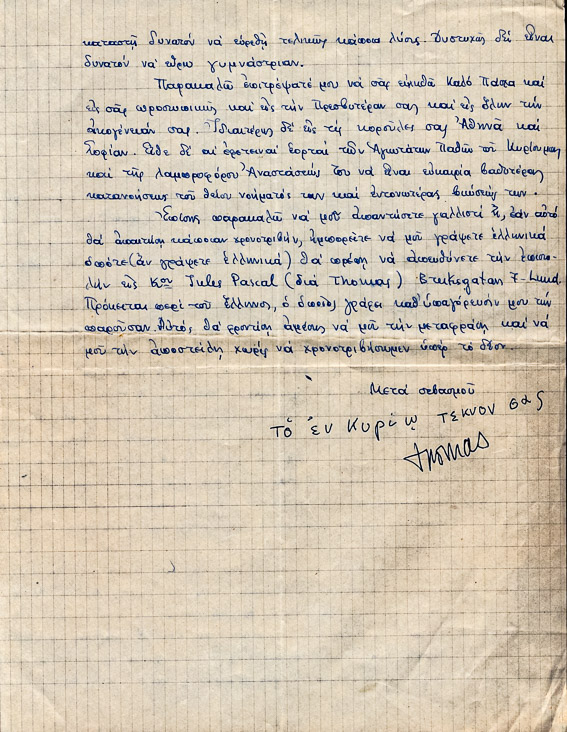 καταστῇ δυνατόν νά εὑρεθῇ τελικῶς κάποια λύσις. Δυστυχῶς δέν εἶναι
δυνατόν νά εὕρω γυμνάστριαν.
Παρακαλῶ ἐπιτρέψατέ μου νά σᾶς εὐχηθῶ Καλό Πάσχα καί
εἰς σᾶς προσωπικῶς καί εἰς τήν Πρεσβυτέραν σας καί εἰς ὅλην τήν
οἰκογένειάν σας. Ἰδιαιτέρως δέ εἰς τίς κοροῦλες σας Ἀθηνᾶ καί
Σοφίαν. Εἴθε δέ αἱ ἐρχόμεναι ἑορταί τῶν Ἁγιωτάτων Παθῶν τοῦ Κυρίου μας
καί τῆς λαμπροφόρου Ἀναστάσεώς Του νά εἶναι εὐκαιρία βαθυτέρας
κατανοήσεως τοῦ θείου νοήματός των καί ἐντονωτέρας βιώσεώς των.
Ἐπίσης παρακαλῶ νά μοῦ ἀπαντήσετε γαλλιστί ἤ, ἐάν αὐτό
θά ἀπαιτήσῃ κάποιαν χρονοτριβήν, ἠμπορεῖτε νά μοῦ γράψετε ἑλληνικά
ὁπότε (ἄν γράψετε ἑλληνικά) θά πρέπῃ νά ἀπευθύνετε τήν ἐπιστο-
λήν εἰς Κον Jules Pascal (διά Thomas) 7 - Lund.
Πρόκειται περί τοῦ Ἕλληνος, ὁ ὁποῖος γράφει καθ' ὑπαγόρευσιν μου τήν
παροῦσαν. Αὐτός θά φροντίσῃ ἀμέσως νά μοῦ τήν μεταφράσῃ καί νά
μοῦ τήν ἀποστείλῃ χωρίς νά χρονοτριβήσωμεν ὑπέρ τό δέον.
Μετά σεβασμοῦ
τό ἐν Κυρίῳ τέκνον σας
Thomas